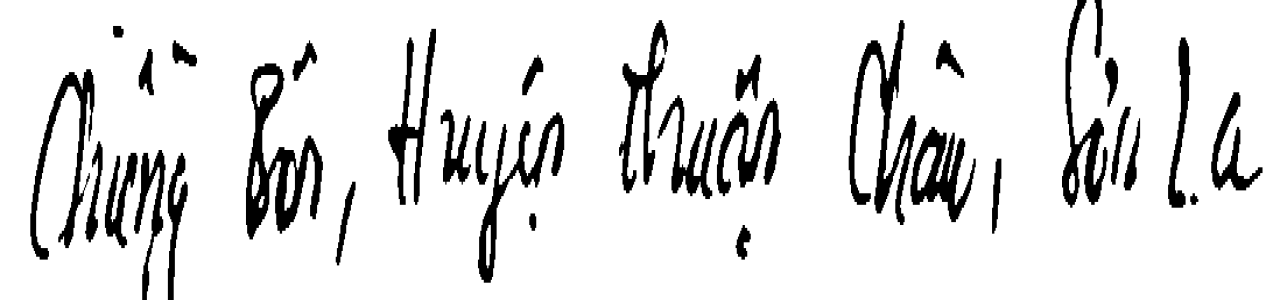 Chiềng Bôn, Huyện Thuận Châu, Sơn La